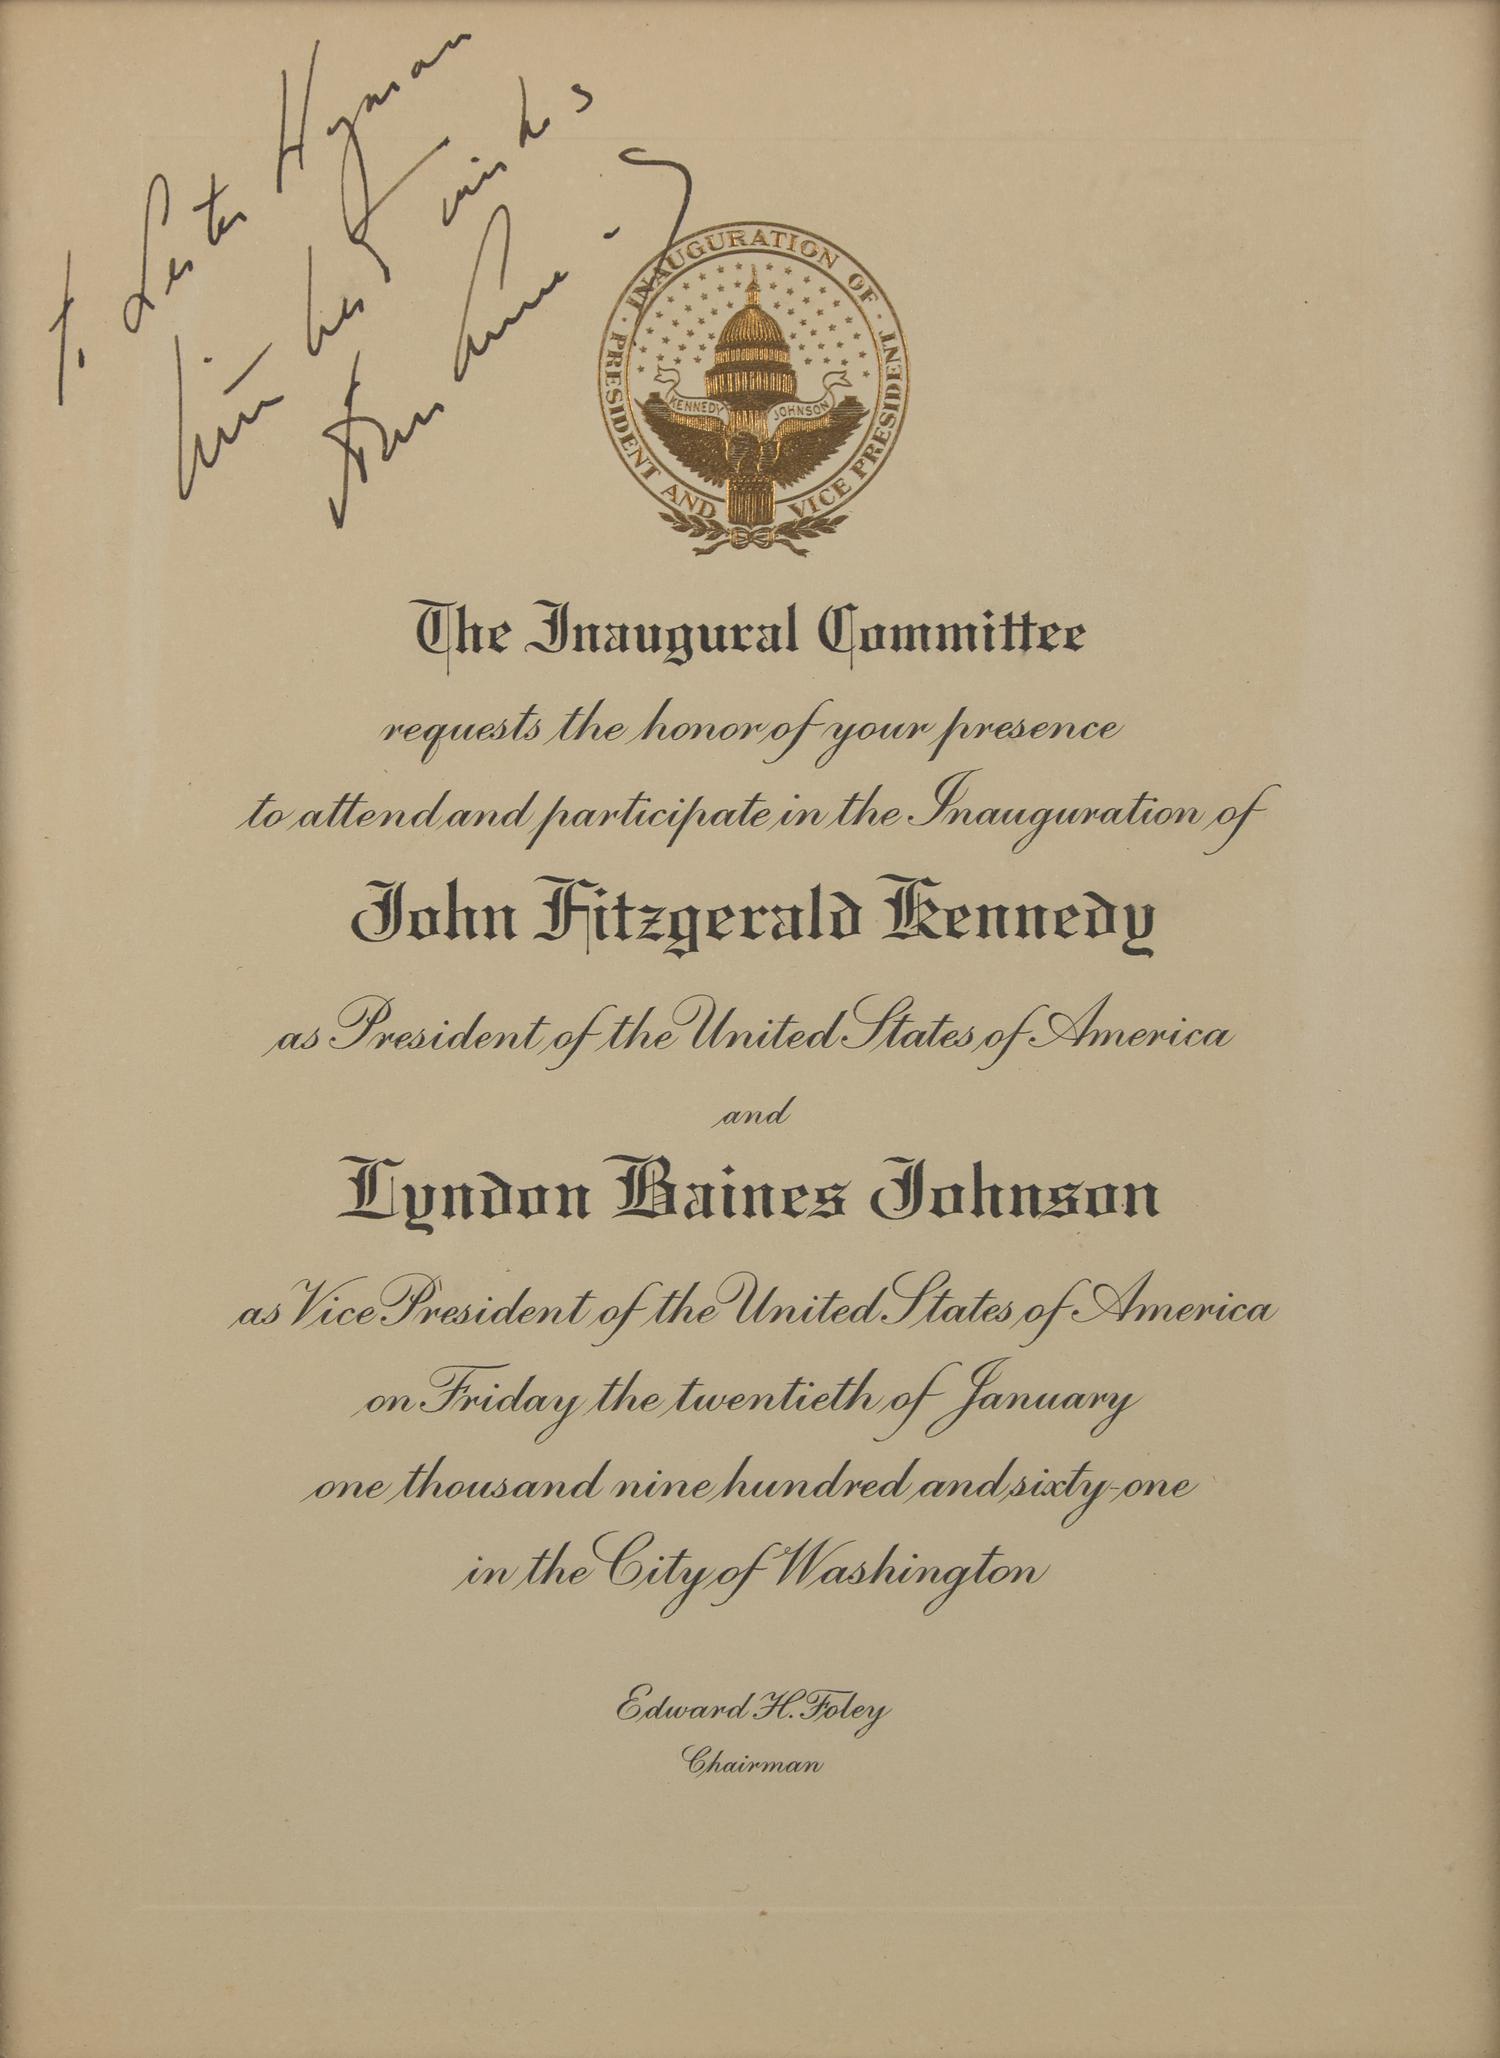 To Lester Hyman
with best wishes
John Kennedy
INAUGURATION OF PRESIDENT AND VICE PRESIDENT
KENNEDY JOHNSON
The Inaugural Committee
requests the honor of your presence
to attend and participate in the Inauguration of
John Fitzgerald Kennedy
as President of the United States of America
and
Lyndon Baines Johnson
as Vice President of the United States of America
on Friday the twentieth of January
one thousand nine hundred and sixty-one
in the City of Washington
Edward H. Foley
Chairman